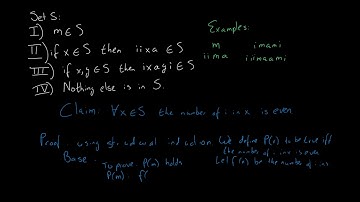 Set S:
I) m ∈ S
II) if x ∈ S then iixa ∈ S
III) if x,y ∈ S then ixayi ∈ S
IV) Nothing else is in S.
Examples:
m imami
iima iiimaami
Claim: ∀x∈S the number of i in x is even
Proof. using structural induction We define P(x) to be true iff
the number of i in x is even
Base. Let f(x) be the number of i in x
To prove: P(m) holds
P(m). f(